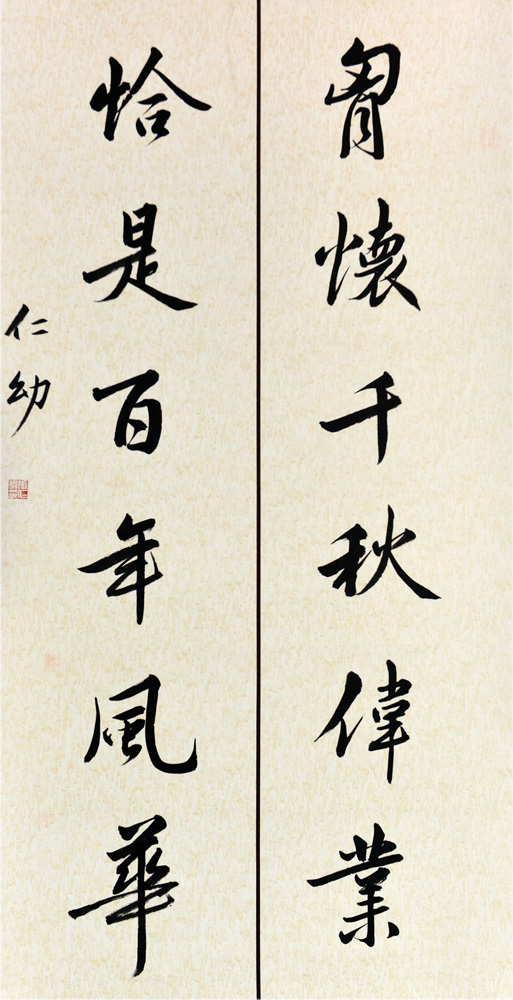 胷懷千秋偉業
恰是百年風華
仁幼